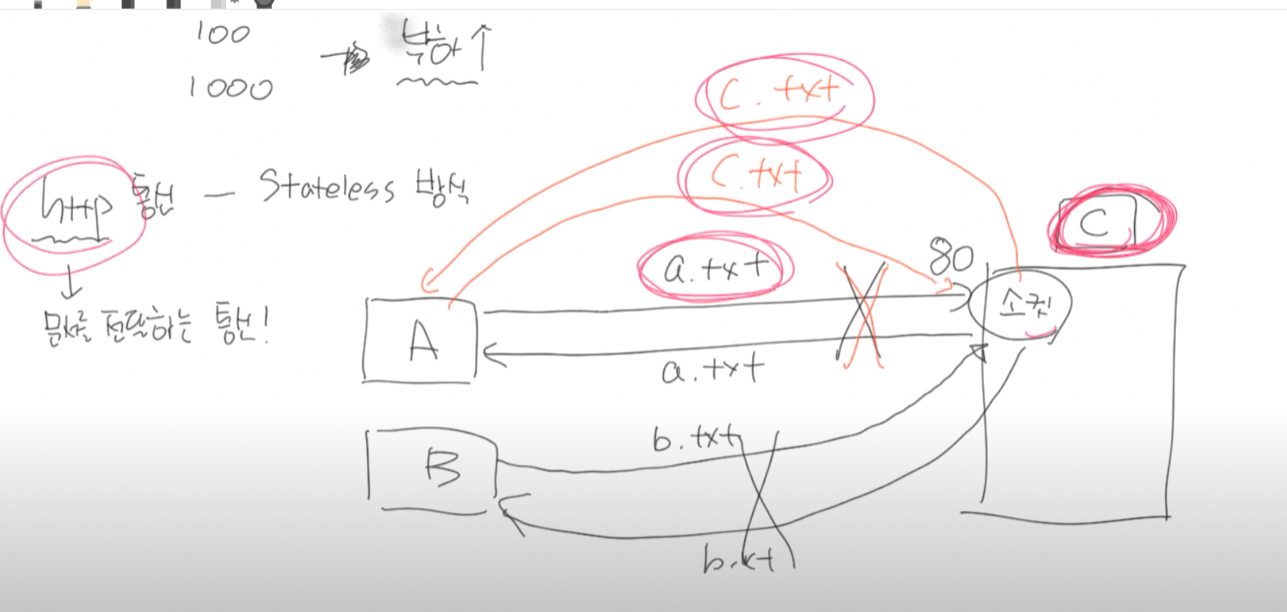 100
1000
부하↑
http 통신 - Stateless 방식
문서를 전달하는 통신!
c.txt
c.txt
a.txt
80
C
소켓
A
a.txt
b.txt
B
b.xt